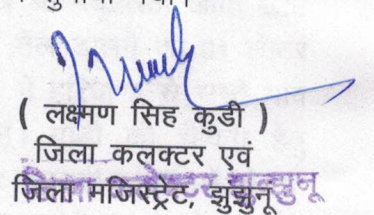 ( लक्ष्मण सिह कुडी )
जिला कलक्टर एवं
जिला मजिस्ट्रेट, झुझुनू